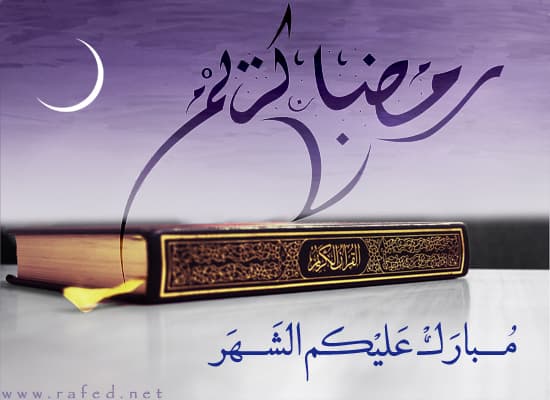 رمضان كريم
القرآن الكريم
مُبارَكْ عَليْكم الشَهَر
www.rafed.net